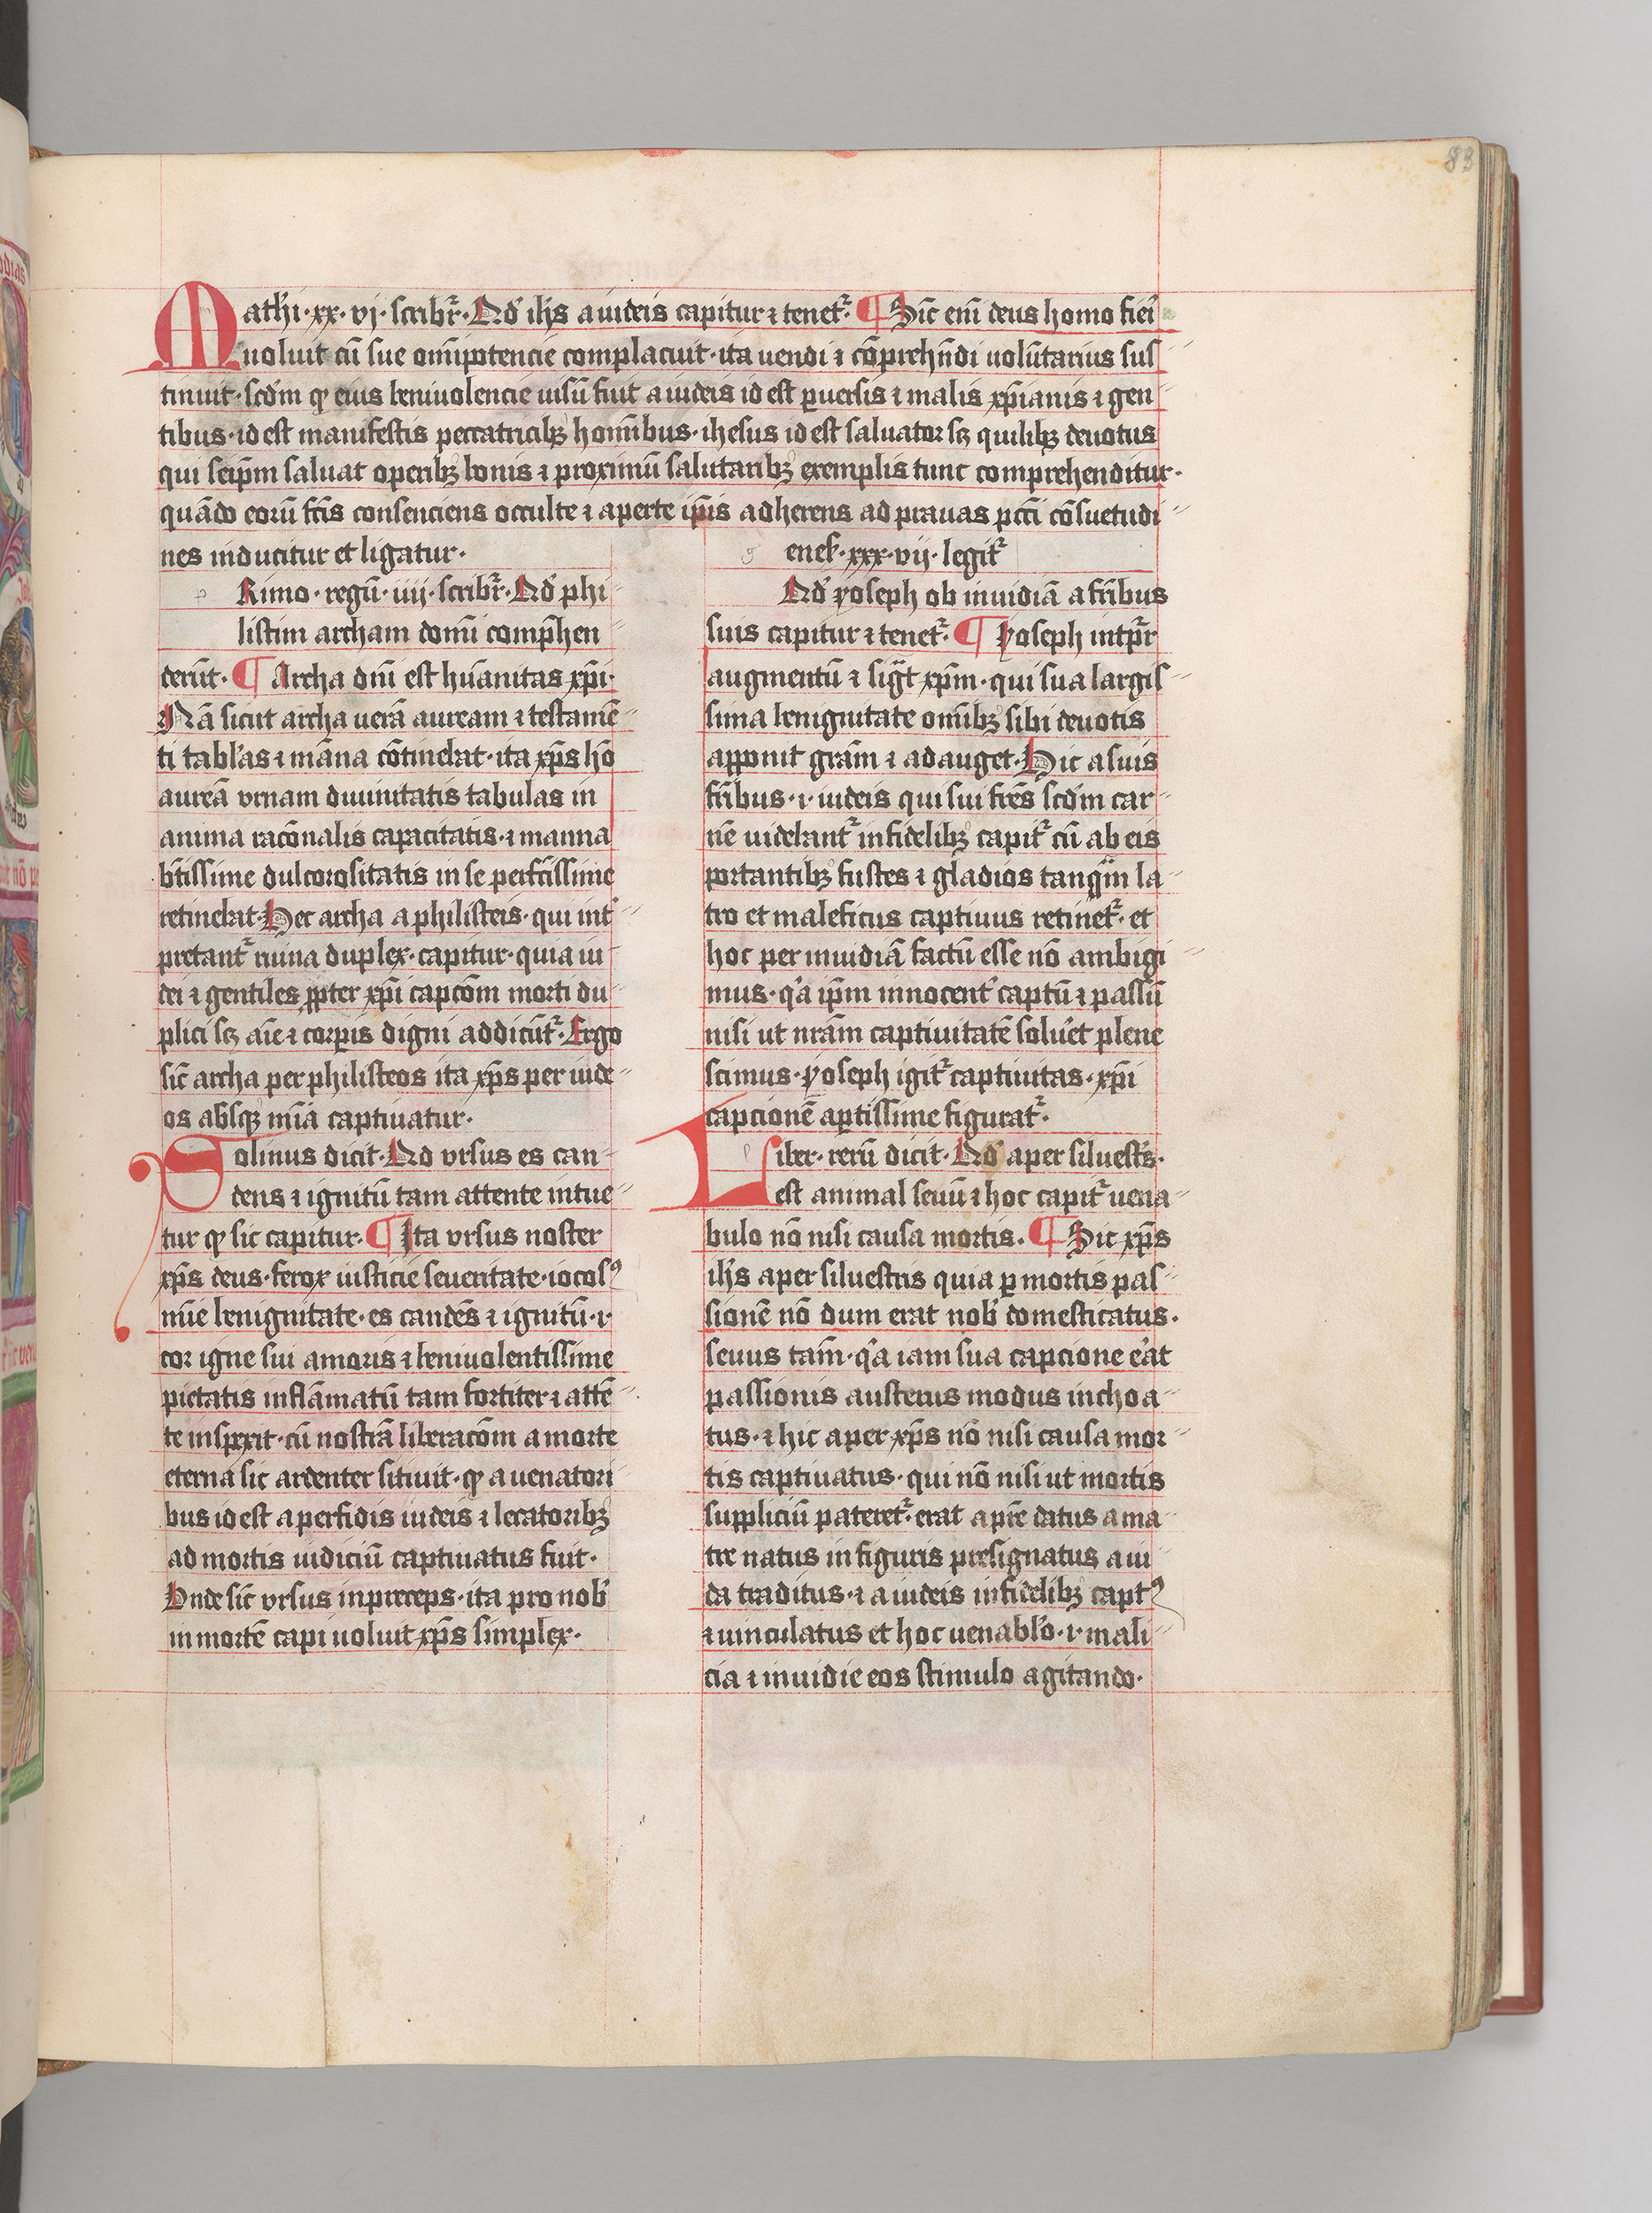 83
Mathi·xx·vj·scribr̄·Qd̄ ih̄s a iudeis capitur ⁊ tenet̄r·¶Sic̄ eni̅ deus homo fieri
uoluit cu̅ sue om̅ipotencie complacuit·ita uendi ⁊ co̅prehe̅di uolu̅tarius sus
tinuit·scd̄m qꝫ eius beniuolencie uisu̅ fuit a iudeis id est ꝑuersis ⁊ malis xp̄ianis ⁊ gen
tibus·id est manifestis peccatricibꝫ homi̅bus·ihesus id est saluator sꝫ quilibꝫ deuotus
qui seip̄m saluat operibꝫ bonis ⁊ proximu̅ salutaribꝫ exemplis tunc comprehenditur·
qua̅do eoru̅ fc̄is consenciens occulte ⁊ aperte ip̄is adherens ad prauas pcc̄i co̅suetudi
nes inducitur et ligatur·
p Rimo·regu̅·iiij·scribr̄·Qd̄ phi
listim archam domi̅ comp̄hen
deru̅t·¶Archa dn̄i est hu̅anitas xp̄i·
Na̅ sicut archa uera̅ auream ⁊ testame̅
ti tabl'as ⁊ ma̅na co̅tinebat·ita xp̄s ho̅
aurea̅ vrnam diuinitatis tabulas in
anima raco̅nalis capacitatis·⁊ manna
bt̄issime dulcorositatis in se perfc̄issime
retinebat·Hec archa a philisteis·qui int'
pretant̄r ruina duplex·capitur·quia iu
dei ⁊ gentiles ꝓpter xp̄i capco̅m morti du
plici sꝫ ai̅e ⁊ corp̄is digni addicu̅t̄r·Ergo
sic̄ archa per philisteos ita xp̄s per iude
os absqꝫ mi̅a captiuatur·
Solinus dicit·Qd vrsus es can
dens ⁊ ignitu̅ tam attente intue
tur qꝫ sic capitur·¶Ita vrsus noster
xp̄s deus·ferox iusticie seueritate·iocosꝰ
mi̅e benignitate·es cande̅s ⁊ ignitu̅·i·
cor igne sui amoris ⁊ beniuolentissime
pietatis infla̅matu̅ tam fortiter ⁊ atte̅
te inspexit·cu̅ nostra̅ liberaco̅m a morte
eterna sic ardenter sitiuit·qꝫ a uenatori
bus id est a perfidis iudeis ⁊ lecatoribꝫ
ad mortis iudiciu̅ captiuatus fuit·
Vnde sic̄ vrsus inpreceps·ita pro nob'
in morte̅ capi uoluit xp̄s simplex·
g enes̄·xxx·vij·legit̄r
Qd̄ yoseph ob inuidia̅ a fr̄ibus
suis capitur ⁊ tenet̄r·¶Yoseph intp̄r
augmentu̅ ⁊ sig̅t xp̄m·qui sua largis
sima benignitate om̅ibꝫ sibi deuotis
apponit gr̄am ⁊ adauget·Hic a suis
fr̄ibus·i·iudeis qui sui fr̄es scd̄m car
ne̅ uidebant̄r infidelibꝫ capit̄r cu̅ ab eis
portantibꝫ fustes ⁊ gladios tanqͣm la
tro et maleficus captiuus retinet̄r·et
hoc per inuidia̅ factu̅ esse no̅ ambigi
mus·qͣ ip̄m innocent' captu̅ ⁊ passu̅
nisi ut nr̄am captiuitate̅ solu'et plene
scimus·Yoseph igit̄r captiuitas·xp̄i
capcione̅ aptissime figurat̄r·
Liber·reru̅ dicit·Qd̄ aper siluest's·
est animal seuu̅ ⁊ hoc capit̄r uena
bulo no̅ nisi causa mortis·¶Sic xp̄s
ih̄s aper siluestris quia ꝑ mortis pas
sione̅ no̅ dum erat nob' domesticatus·
seuus tam̅·qͣ iam sua capcione e'at
passionis austerus modus inchoa
tus·⁊ hic aper xp̄s no̅ nisi causa mor
tis captiuatus·qui no̅ nisi ut mortis
suppliciu̅ pateret̄r·erat a pr̄e datus a ma
tre natus in figuris presignatus a iu
da traditus·⁊ a iudeis infidelibꝫ captꝰ
⁊ uinculatus et hoc uenabl'o·i·mali
cia ⁊ inuidie eos stimulo agitando·